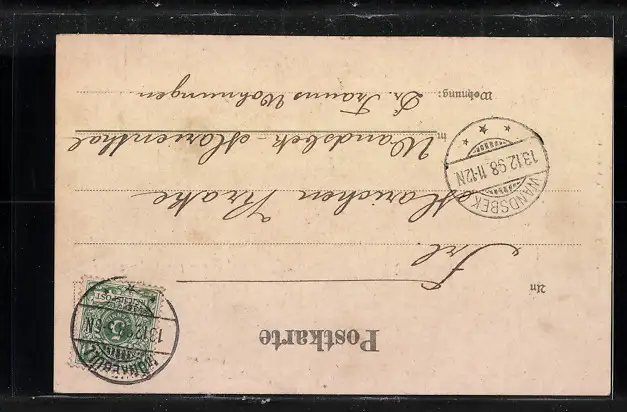 Postkarte
An
Frl.
Mariechen Krake
in Wandsbek-Marienthal
Wohnung: Dr. Trauns Wohnungen
WANDSBEK
13.12.98.11-12N
13.12
6-
REICHSPOST
5